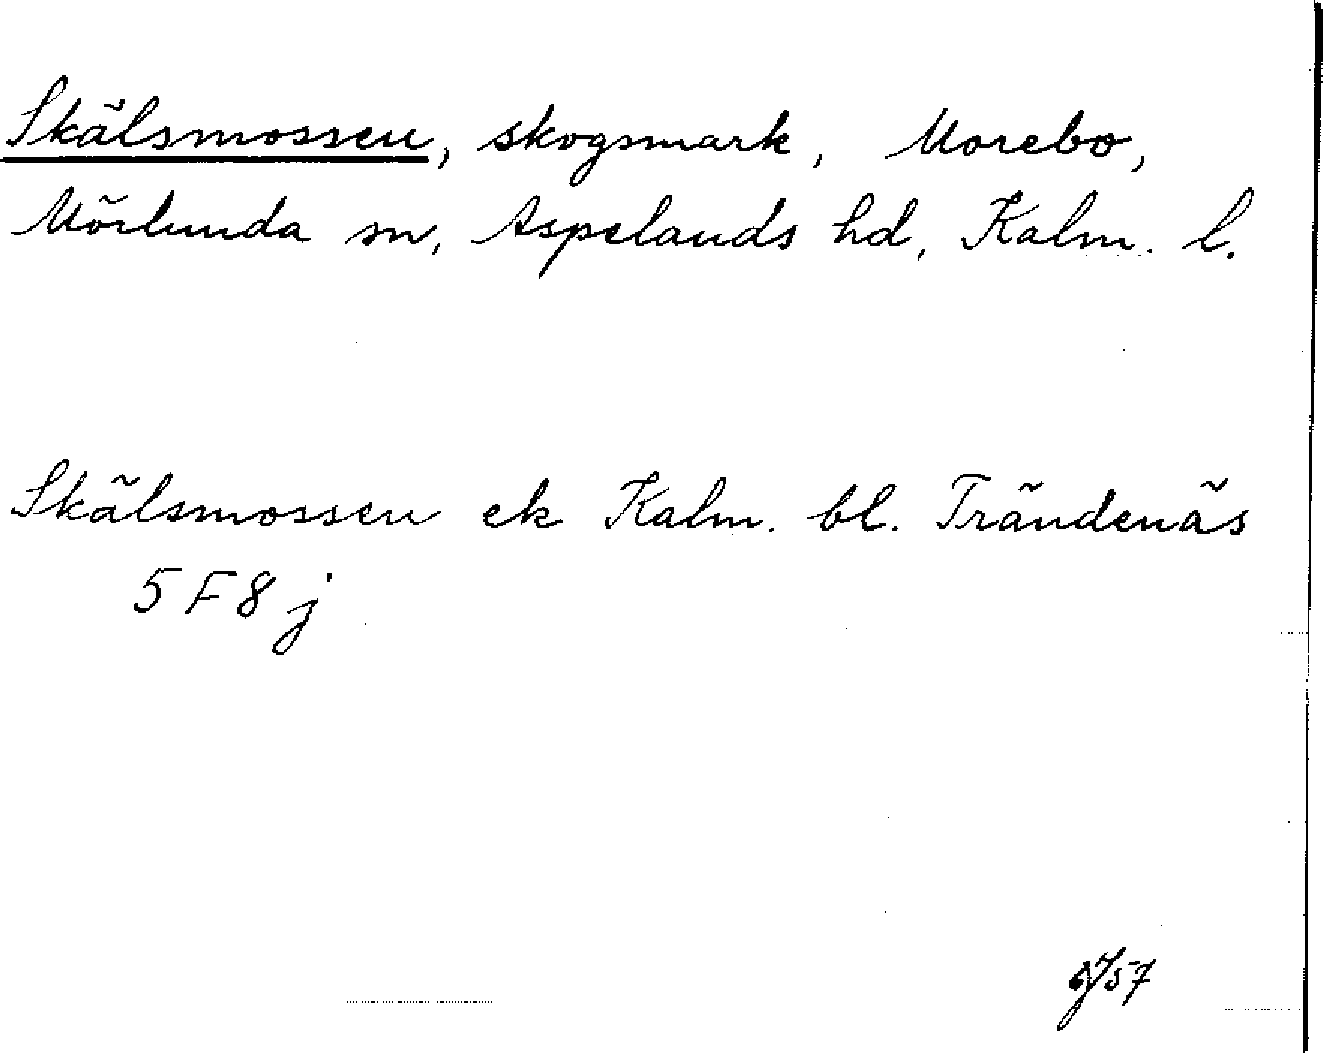 Skälsmossen, skogsmark, Morebo,
Mörlunda sn, Aspelands hd, Kalm. l.
Skälsmossen ek Kalm. bl. Trändenäs
5 F 8 j
57